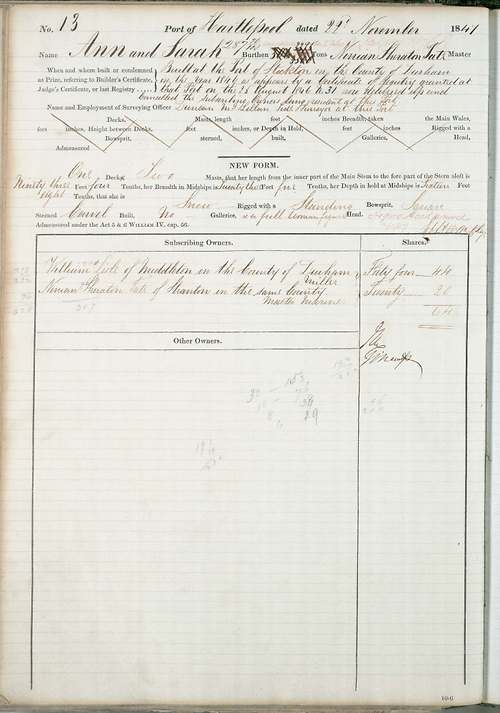 No. 13 Port of Hartlepool dated 22d November 1841
Name Ann and Sarah Burthen Tons Ninian Sheraton Tate Master
When and where built or condemned Built at the Port of Stockton in the County of Durham
as Prize, referring to Builder's Certificate, in the Year as appears by a Certificate of Registry granted at
Judge's Certificate, or last Registry that Port on the 26 August No 31 now delivered up and
Cancelled the Subscribing Owners being resident at this Port
Name and Employment of Surveying Officer Duncan Surveyor at this Port
Decks, Masts, length feet inches Breadth, taken the Main Wales,
feet inches, Height between Decks, feet inches, or Depth in Hold, feet inches Rigged with a
Bowsprit, sterned, built, Galleries, Head,
Admeasured
NEW FORM.
One Decks, Two Masts, that her length from the inner part of the Main Stem to the fore part of the Stern aloft is
Ninety three Feet four Tenths, her Breadth in Midships is Twenty three Feet five Tenths, her Depth in hold at Midships is Feet
eight Tenths, that she is Snow Rigged with a Standing Bowsprit, Square
Sterned Carvel Built, No Galleries, and a full Woman figure Head.
Admeasured under the Act 5 & 6 WILLIAM IV. cap. 56.
Subscribing Owners. Shares.
William Lisle of Middleton in the County of Durham Forty four 44
Miller
Ninian Sheraton Tate of Stranton in the same County Twenty 20
Master Mariner
64
Other Owners.
106